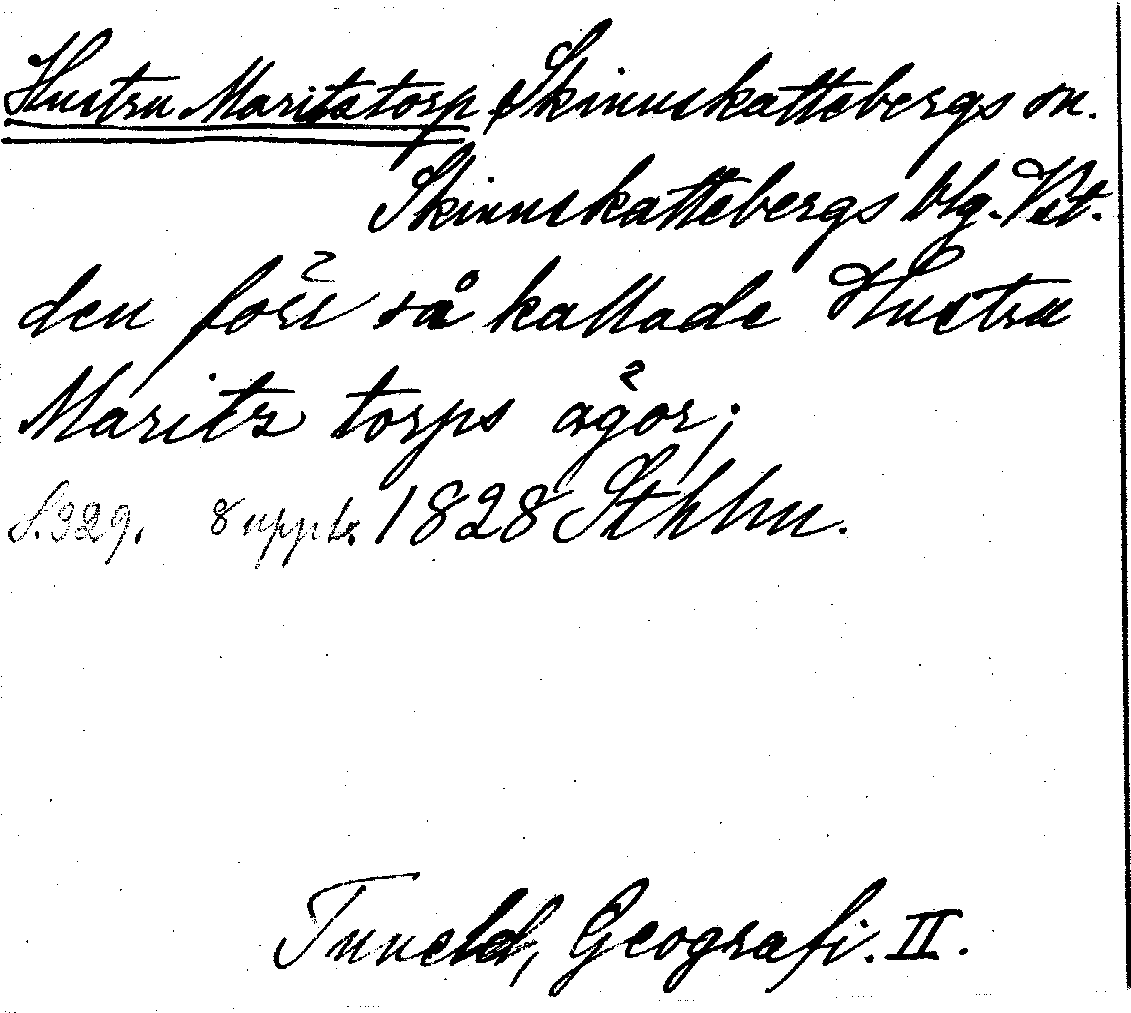 Hustru Maritstorp Skinnskattebergs sn.
Skinnskattebergs blg. Vstl.
den förr så kallade Hustru
Maritz torps ägor;
S. 329. 8 uppl. 1828 Sthlm.
Tuneld, Geografi. II.